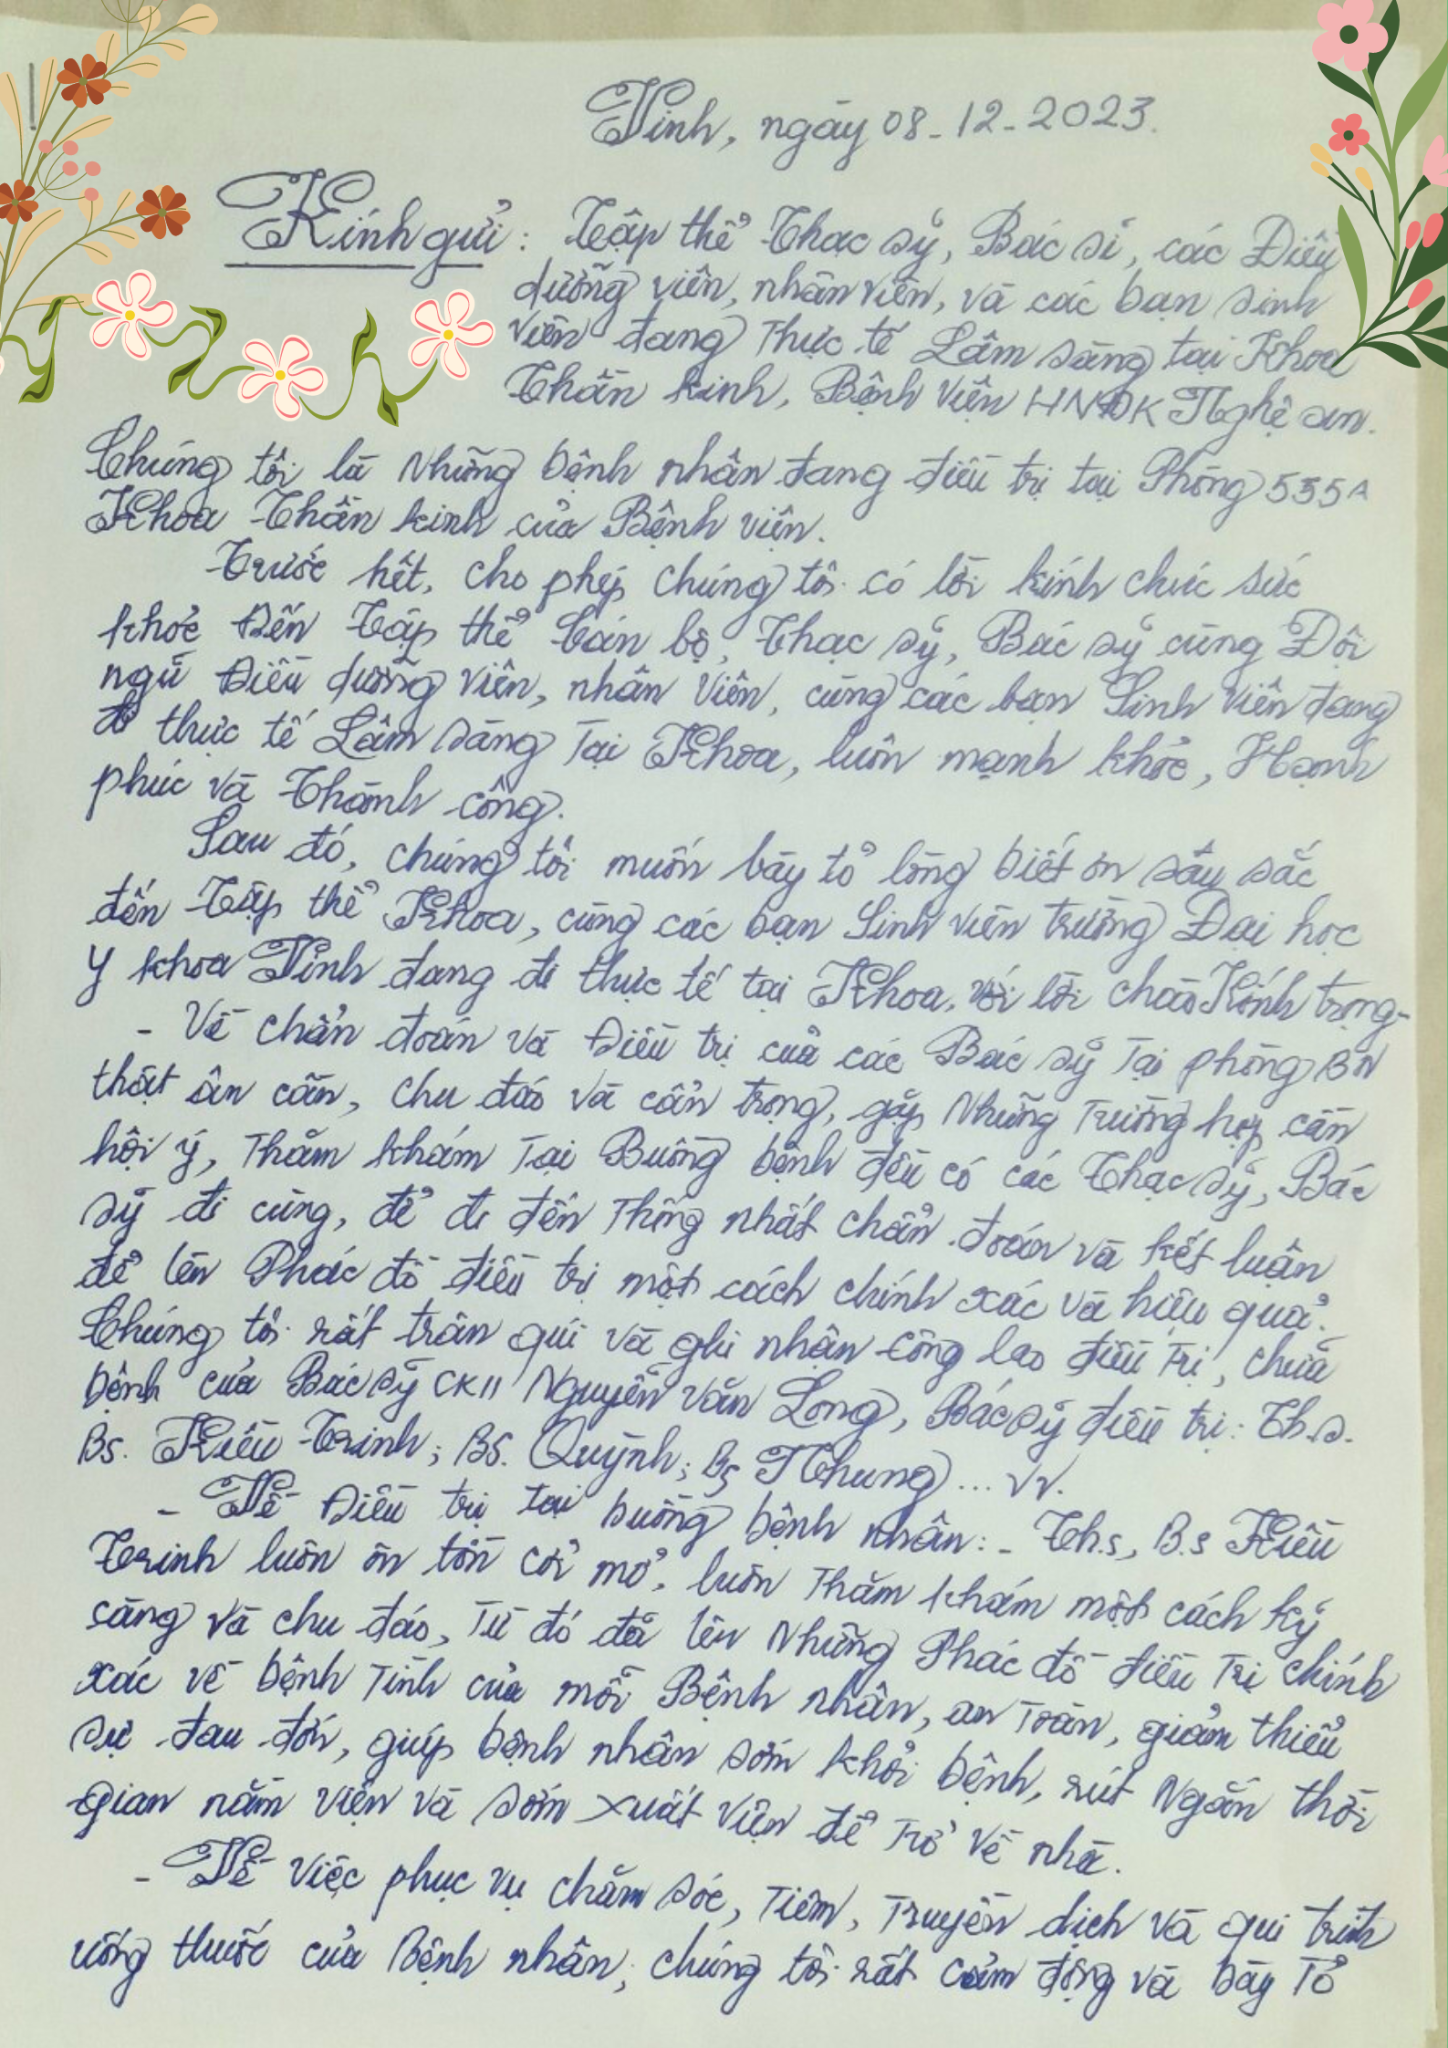 Vinh, ngày 08-12-2023.
Kính gửi: Tập thể Thạc sỹ, Bác sĩ, các Điều
dưỡng viên, nhân viên, và các bạn sinh
viên đang Thực tế Lâm sàng tại Khoa
Thần kinh, Bệnh viện HNĐK Nghệ an.
Chúng tôi là Những bệnh nhân đang điều trị tại Phòng 535A
Khoa Thần kinh của Bệnh viện.
Trước hết, cho phép chúng tôi có lời kính chúc sức
khỏe Đến Tập thể Cán bộ, Thạc sỹ, Bác sỹ cùng Đội
ngũ Điều dưỡng viên, nhân viên, cùng các bạn Sinh viên đang
đi thực tế Lâm sàng Tại Khoa, luôn mạnh khỏe, Hạnh
phúc và Thành công.
Sau đó, chúng tôi muốn bày tỏ lòng biết ơn sâu sắc
đến Tập thể Khoa, cùng các bạn Sinh viên trường Đại học
Y khoa Vinh đang đi thực tế tại Khoa, với lời chào Kính trọng-
- Về chẩn đoán và Điều trị của các Bác sỹ Tại phòng BN
thật ân cần, chu đáo và cẩn trọng, gặp Những Trường hợp cần
hội ý, Thăm khám Tại Buồng bệnh đều có các Thạc sỹ, Bác
sỹ đi cùng, để đi đến Thống nhất chẩn đoán và kết luận
để lên Phác đồ điều trị một cách chính xác và hiệu quả.
Chúng tôi rất trân quí và ghi nhận công lao điều Trị, chữa
bệnh của Bác sỹ CKII Nguyễn Văn Long, Bác sỹ điều trị: Th.s.
Bs. Kiều Trinh; BS. Quỳnh; Bs Nhung... vv.
- Về Điều trị tại buồng bệnh nhân: - Th.s, B.s Kiều
Trinh luôn ôn tồn cởi mở, luôn Thăm khám một cách kỹ
càng và chu đáo, Từ đó đã lên Những Phác đồ điều Trị chính
xác về bệnh Tình của mỗi Bệnh nhân, an Toàn, giảm thiểu
sự đau đớn, giúp bệnh nhân sớm khỏi bệnh, rút Ngắn thời
gian nằm viện và sớm xuất viện để Trở về nhà.
- Về việc phục vụ chăm sóc, Tiêm, Truyền dịch và qui trình
uống thuốc của Bệnh nhân, chúng tôi rất cảm động và bày Tỏ